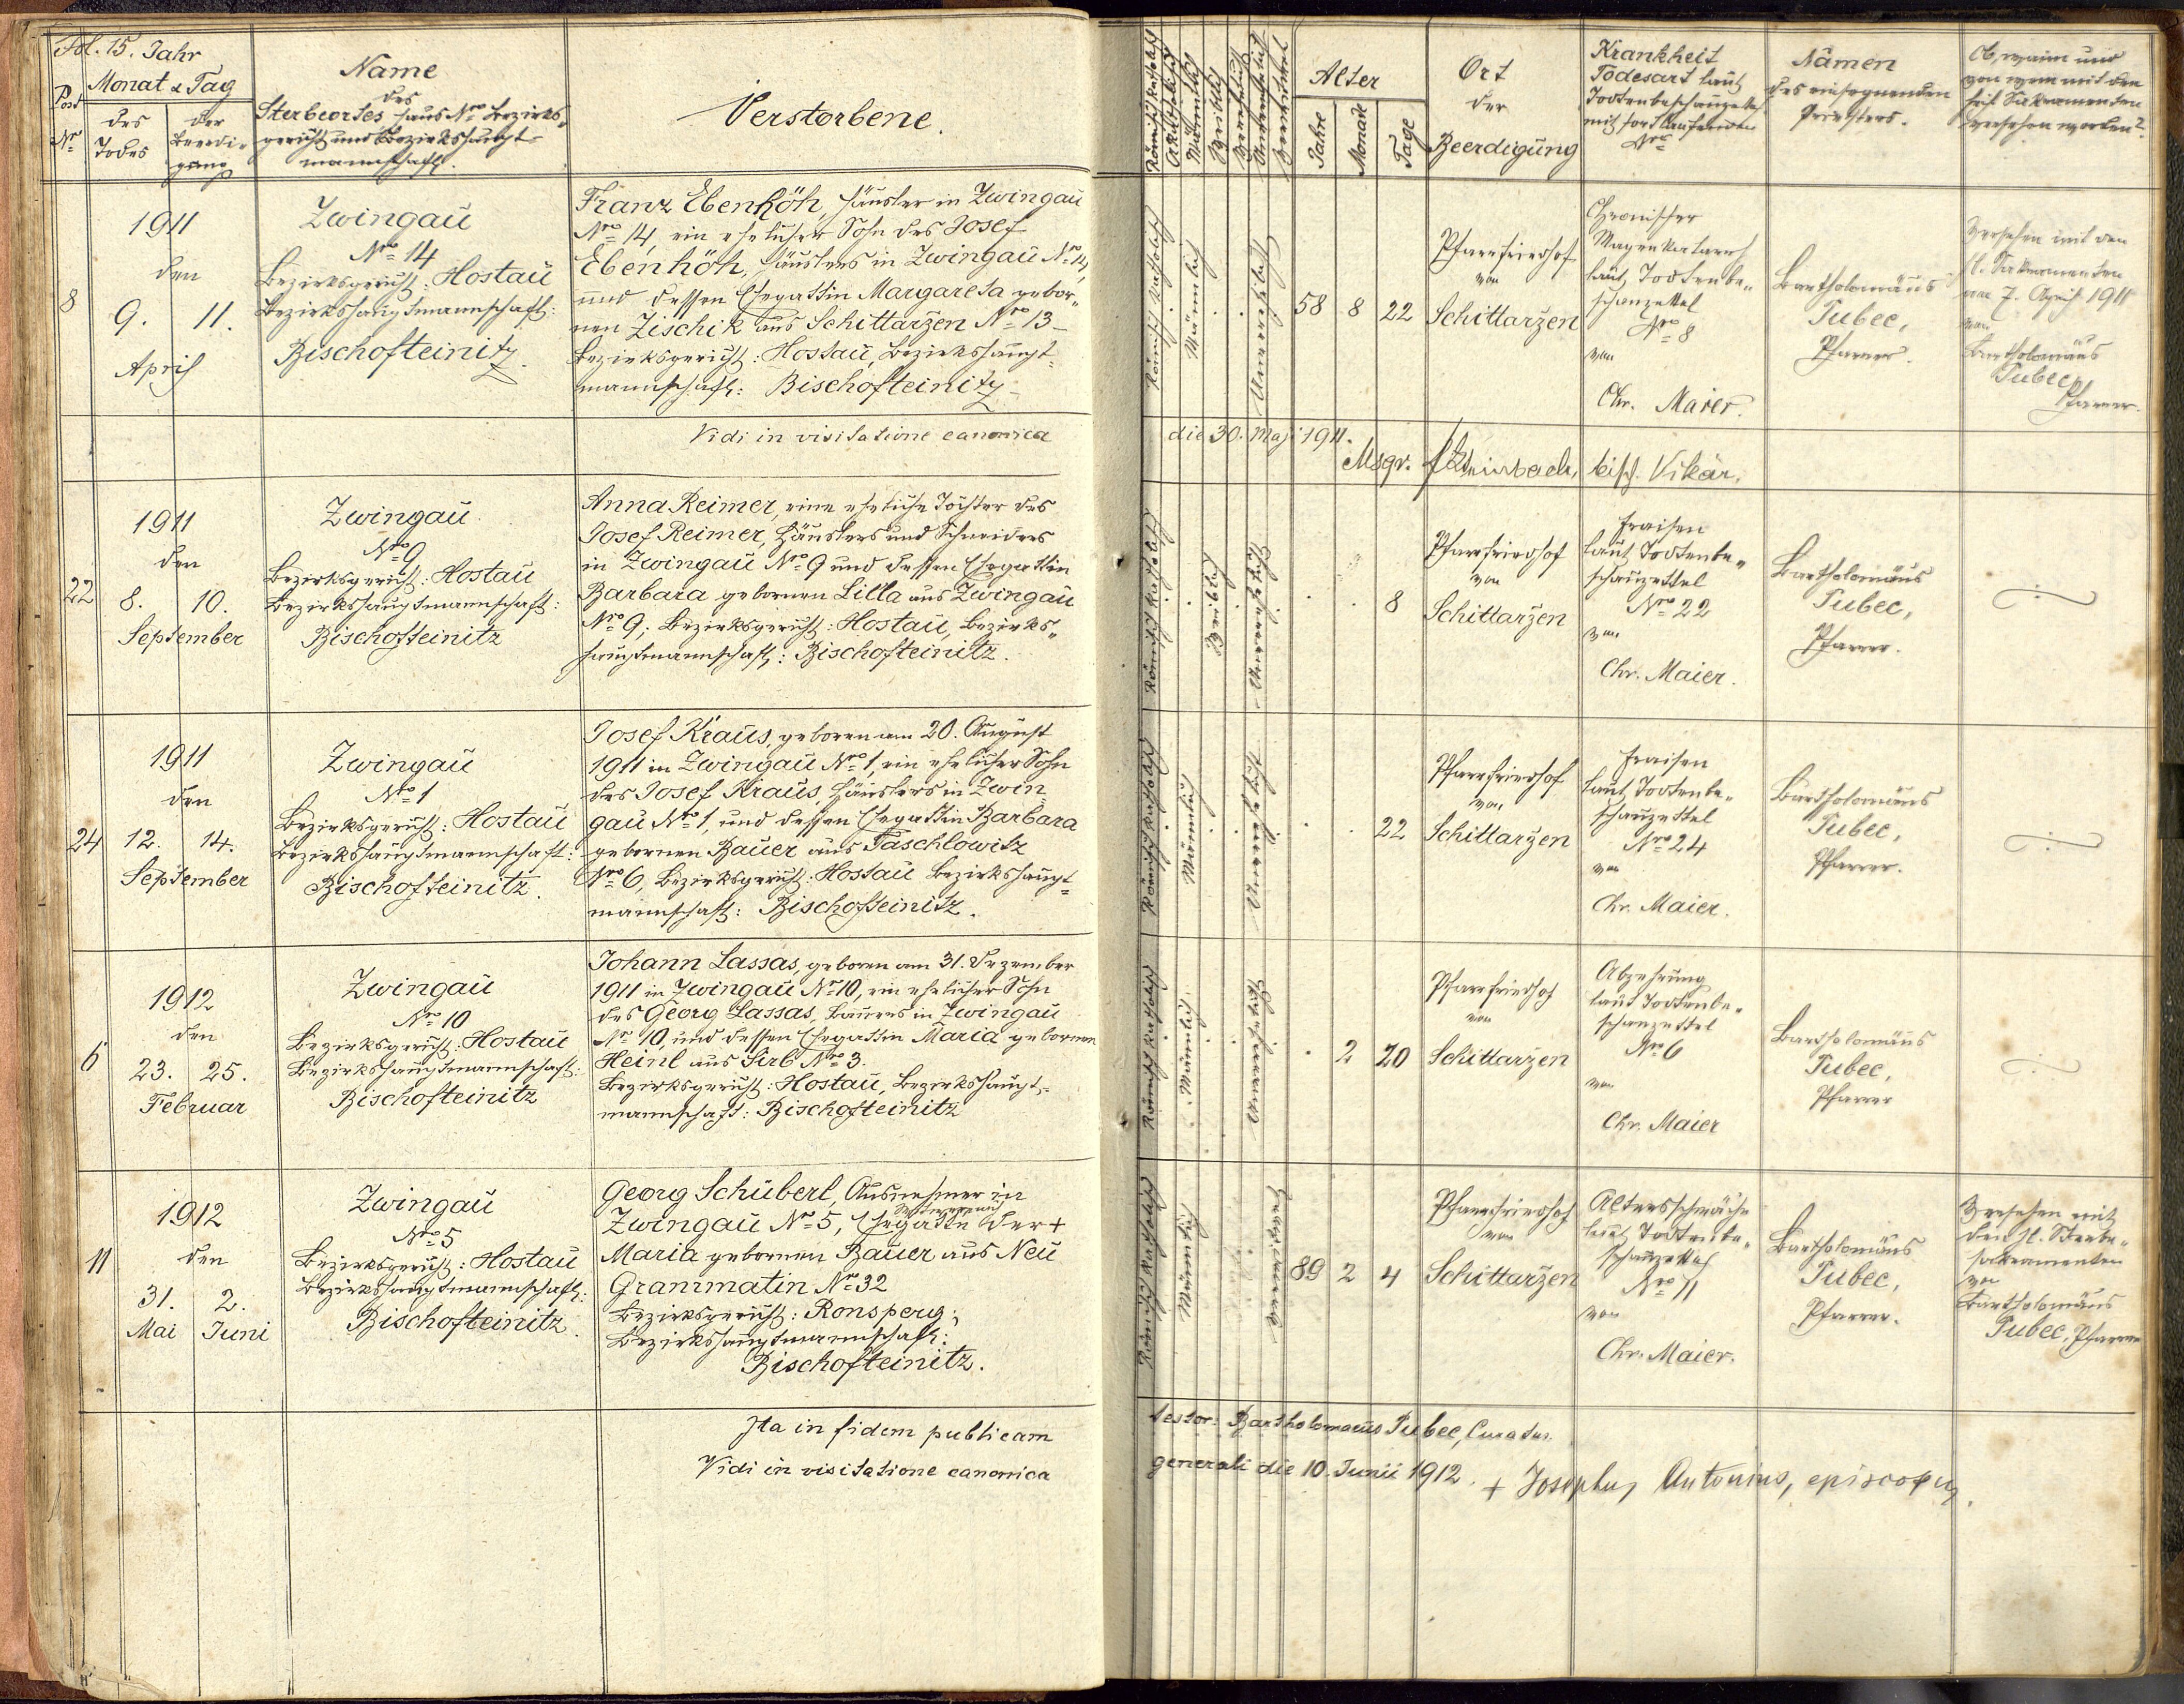 Fol. 15. Jahr
Monat & Tag
Post
Nro
des
Todes
der
Beerdi-
gung
Name
des
Sterbeortes Haus Nro Bezirks-
gericht und Bezirkshaupt-
mannschaft.
Verstorbene.
8
1911
den
9. 11.
April
Zwingau
Nro 14
Bezirksgericht: Hostau
Bezirkshauptmannschaft:
Bischofteinitz.
Franz Ebenhöh, Häusler in Zwingau
Nro 14, ein ehelicher Sohn des Josef
Ebenhöh, Häuslers in Zwingau Nro 14,
und dessen Ehegattin Margareta gebor„
nen Zischik aus Schittarzen Nro 13 –
Bezirksgericht: Hostau, Bezirkshaupt=
mannschaft: Bischofteinitz –
Vidi in visitatione canonica
22
1911
den
8. 10.
September
Zwingau
Nro 9
Bezirksgericht: Hostau
Bezirkshauptmannschaft:
Bischofteinitz
Anna Reimer, eine eheliche Tochter des
Josef Reimer, Häuslers und Schneiders
in Zwingau Nro 9 und dessen Ehegattin
Barbara gebornen Lilla aus Zwingau
Nro 9; Bezirksgericht: Hostau, Bezirks„
hauptmannschaft: Bischofteinitz.
24
1911
den
12. 14.
September
Zwingau
Nro 1
Bezirksgericht: Hostau
Bezirkshauptmannschaft:
Bischofteinitz.
Josef Kraus, geboren am 20. August
1911 in Zwingau Nro 1, ein ehelicher Sohn
des Josef Kraus, Häuslers in Zwin=
gau Nro 1, und dessen Ehegattin Barbara
gebornen Bauer aus Taschlowitz
Nro 6, Bezirksgericht: Hostau Bezirkshaupt=
mannschaft: Bischofteinitz.
6
1912
den
23. 25.
Februar
Zwingau
Nro 10
Bezirksgericht: Hostau
Bezirkshauptmannschaft:
Bischofteinitz
Johann Lassas, geboren am 31. Dezember
1911 in Zwingau Nro 10, ein ehelicher Sohn
des Georg Lassas, Bauers in Zwingau
Nro 10, und dessen Ehegattin Maria gebornen
Heinl aus Sirb Nro 3.
Bezirksgericht: Hostau, Bezirkshaupt=
mannschaft: Bischofteinitz
11
1912
den
31. 2.
Mai Juni
Zwingau
Nro 5
Bezirksgericht: Hostau
Bezirkshauptmannschaft:
Bischofteinitz.
Georg Schüberl, Ausnehmer in
Zwingau Nro 5, Ehegatte der +
Maria gebornen Bauer aus Neu
Grammatin Nro 32
Bezirksgericht: Ronsperg;
Bezirkshauptmannschaft:
Bischofteinitz.
Ita in fidem publicam
Vidi in visitatione canonica
Römisch katholisch
Akatholisch
Männlich
Weiblich
Verehelicht
Unverehelicht
Verwitwet
Alter
Jahre
Monate
Tage
Ort
der
Beerdigung
Krankheit
Todesart laut
Todtenbeschauzettel
mit fortlaufender
Nro
Namen
des einsegnenden
Priesters.
Ob, wann und
von wem mit den
heil. Sakramenten
versehen worden?
Römisch katholisch
Männlich
Unverehelicht
58 8 22
Pfarrfriedhof
von
Schittarzen
Chronischer
Magenkatarrh
laut Todtenbe„
schauzettel
Nro 8
von
Chr. Maier.
Bartholomäus
Tubec,
Pfarrer.
Versehen mit den
hl. Sakramenten
am 7. April 1911
von
Bartholomäus
Tubec,
Pfarrer.
die 30. Maji 1911.
Msgr. bisch. Vikär.
Römisch katholisch
Weiblich
Unverehelicht
8
Pfarrfriedhof
von
Schittarzen
Fraisen
laut Todtenbe„
schauzettel
Nro 22
von
Chr. Maier.
Bartholomäus
Tubec,
Pfarrer.
Römisch katholisch
Männlich
Unverehelicht
22
Pfarrfriedhof
von
Schittarzen
Fraisen
laut Todtenbe„
schauzettel
Nro 24
von
Chr. Maier.
Bartholomäus
Tubec,
Pfarrer.
Römisch katholisch
Männlich
Unverehelicht
2 20
Pfarrfriedhof
von
Schittarzen
Abzehrung
laut Todtenbe„
schauzettel
Nro 6
von
Chr. Maier
Bartholomäus
Tubec,
Pfarrer
Römisch katholisch
Männlich
Verwitwet
89 2 4
Pfarrfriedhof
von
Schittarzen
Altersschwäche
laut Todtenbe„
schauzettel
Nro 11
von
Chr. Maier.
Bartholomäus
Tubec,
Pfarrer.
Versehen mit
den hl. Sterbe„
sakramenten
von
Bartholomäus
Tubec, Pfarrer
testor: Bartholomaeus Tubec, Curatus.
generali die 10. Junii 1912. + Josephus Antonius, episcopus.